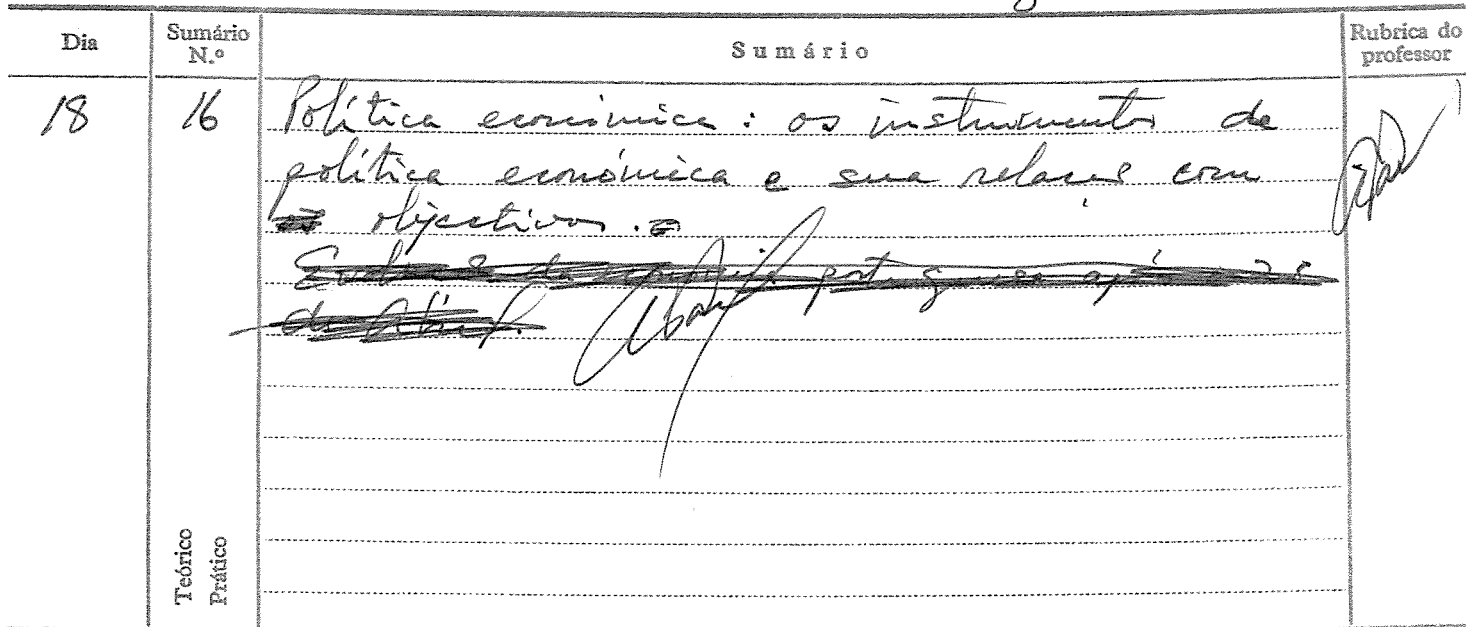 Dia Sumário N.º Sumário Rubrica do professor
18 16 Política económica: os instrumentos de
política económica e sua relação com
os objectivos.
portuguesa após
de Abril.
Teórico
Prático